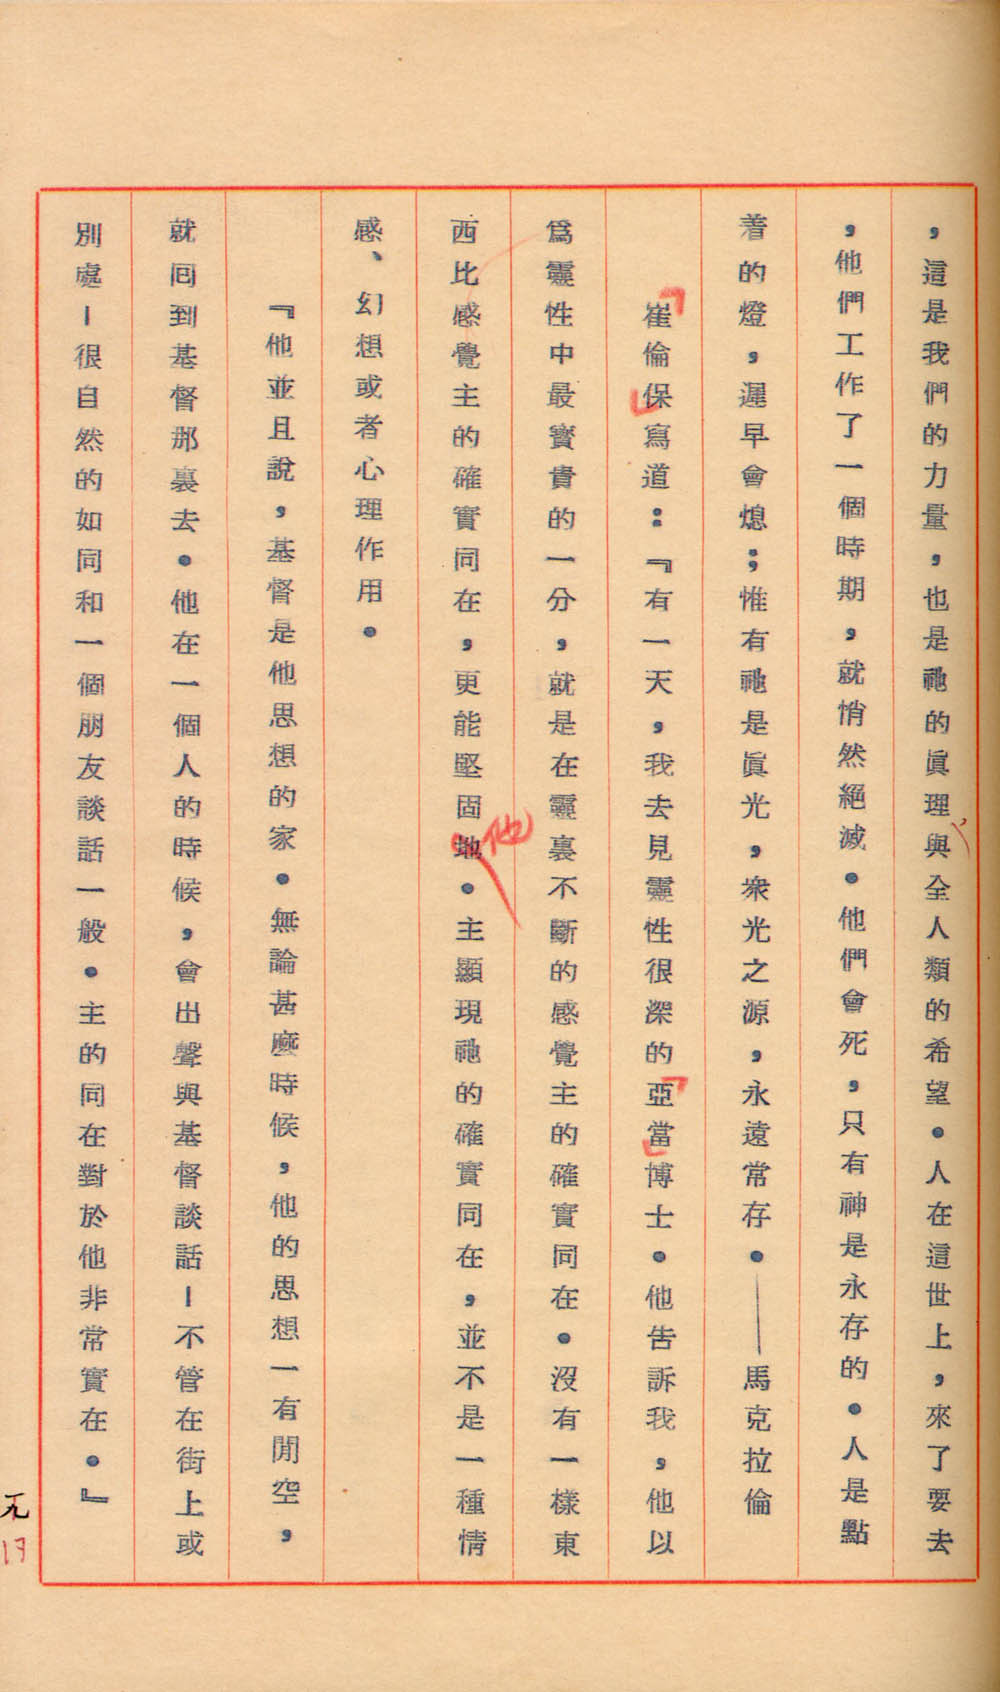 ，這是我們的力量，也是祂的眞理與全人類的希望。人在這世上，來了要去
，他們工作了一個時期，就悄然絕滅。他們會死，只有神是永存的。人是點
着的燈，遲早會熄；惟有祂是眞光，衆光之源，永遠常存。——馬克拉倫
「崔倫保」寫道：『有一天，我去見靈性很深的「亞當」博士。他告訴我，他以
爲靈性中最寶貴的一分，就是在靈裏不斷的感覺主的確實同在。沒有一樣東
西比感覺主的確實同在，更能堅固地。主顯現祂的確實同在，並不是一種情
他
感、幻想或者心理作用。
『他並且說，基督是他思想的家。無論甚麼時候，他的思想一有閒空，
就囘到基督那裏去。他在一個人的時候，會出聲與基督談話—不管在街上或
別處—很自然的如同和一個朋友談話一般。主的同在對於他非常實在。』